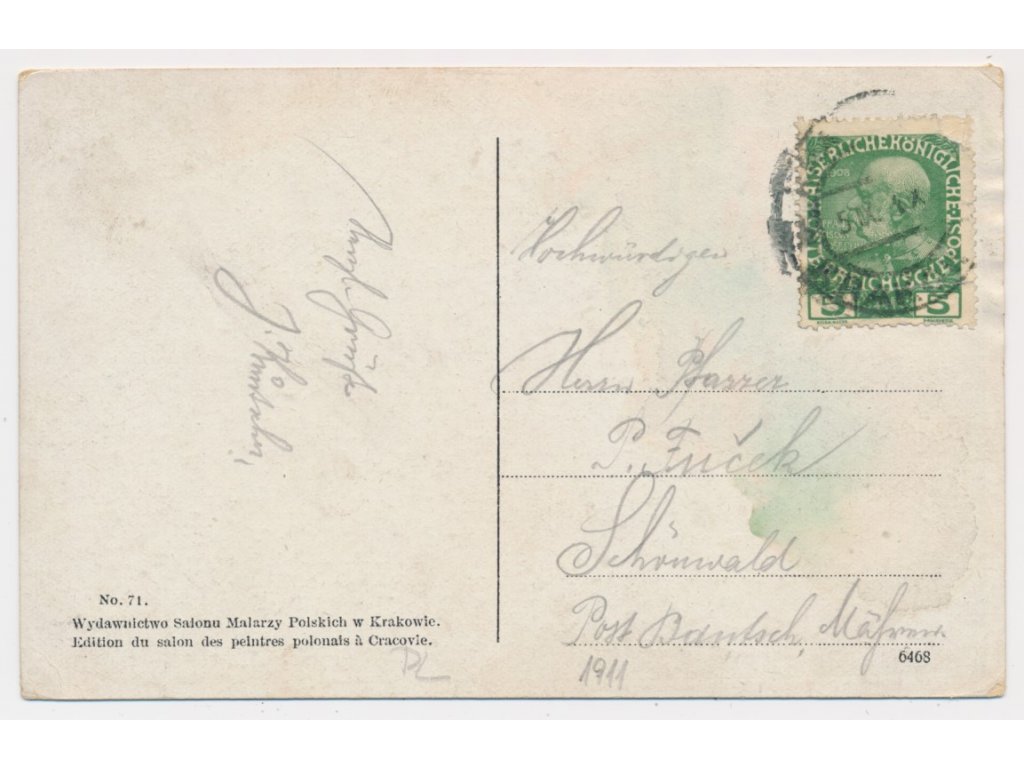 Hochwürdigen
Herrn Pfarrer
P. Fuček
Schönwald
Post Bautsch, Mähren.
1911
No. 71.
Wydawnictwo Salonu Malarzy Polskich w Krakowie.
Edition du salon des peintres polonais à Cracovie.
6468
KAISERLICHE KÖNIGLICHE ÖSTERREICHISCHE POST
1908
5 5